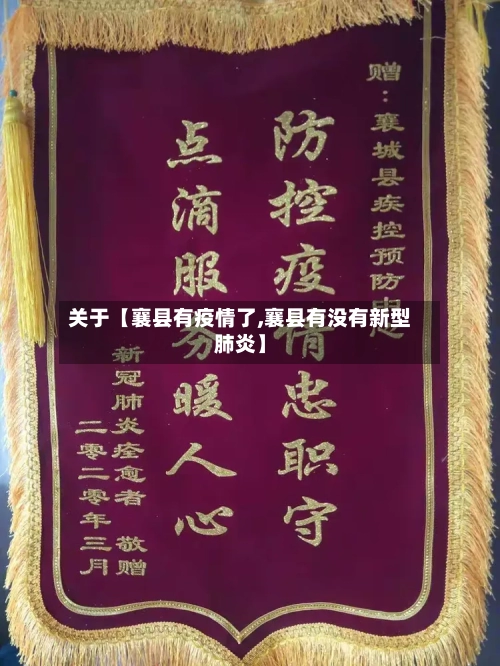 赠：襄城县疾控预防中心
防控疫情忠职守
点滴服务暖人心
新冠肺炎痊愈者 敬赠
二零二零年三月
关于【襄县有疫情了,襄县有没有新型
肺炎】